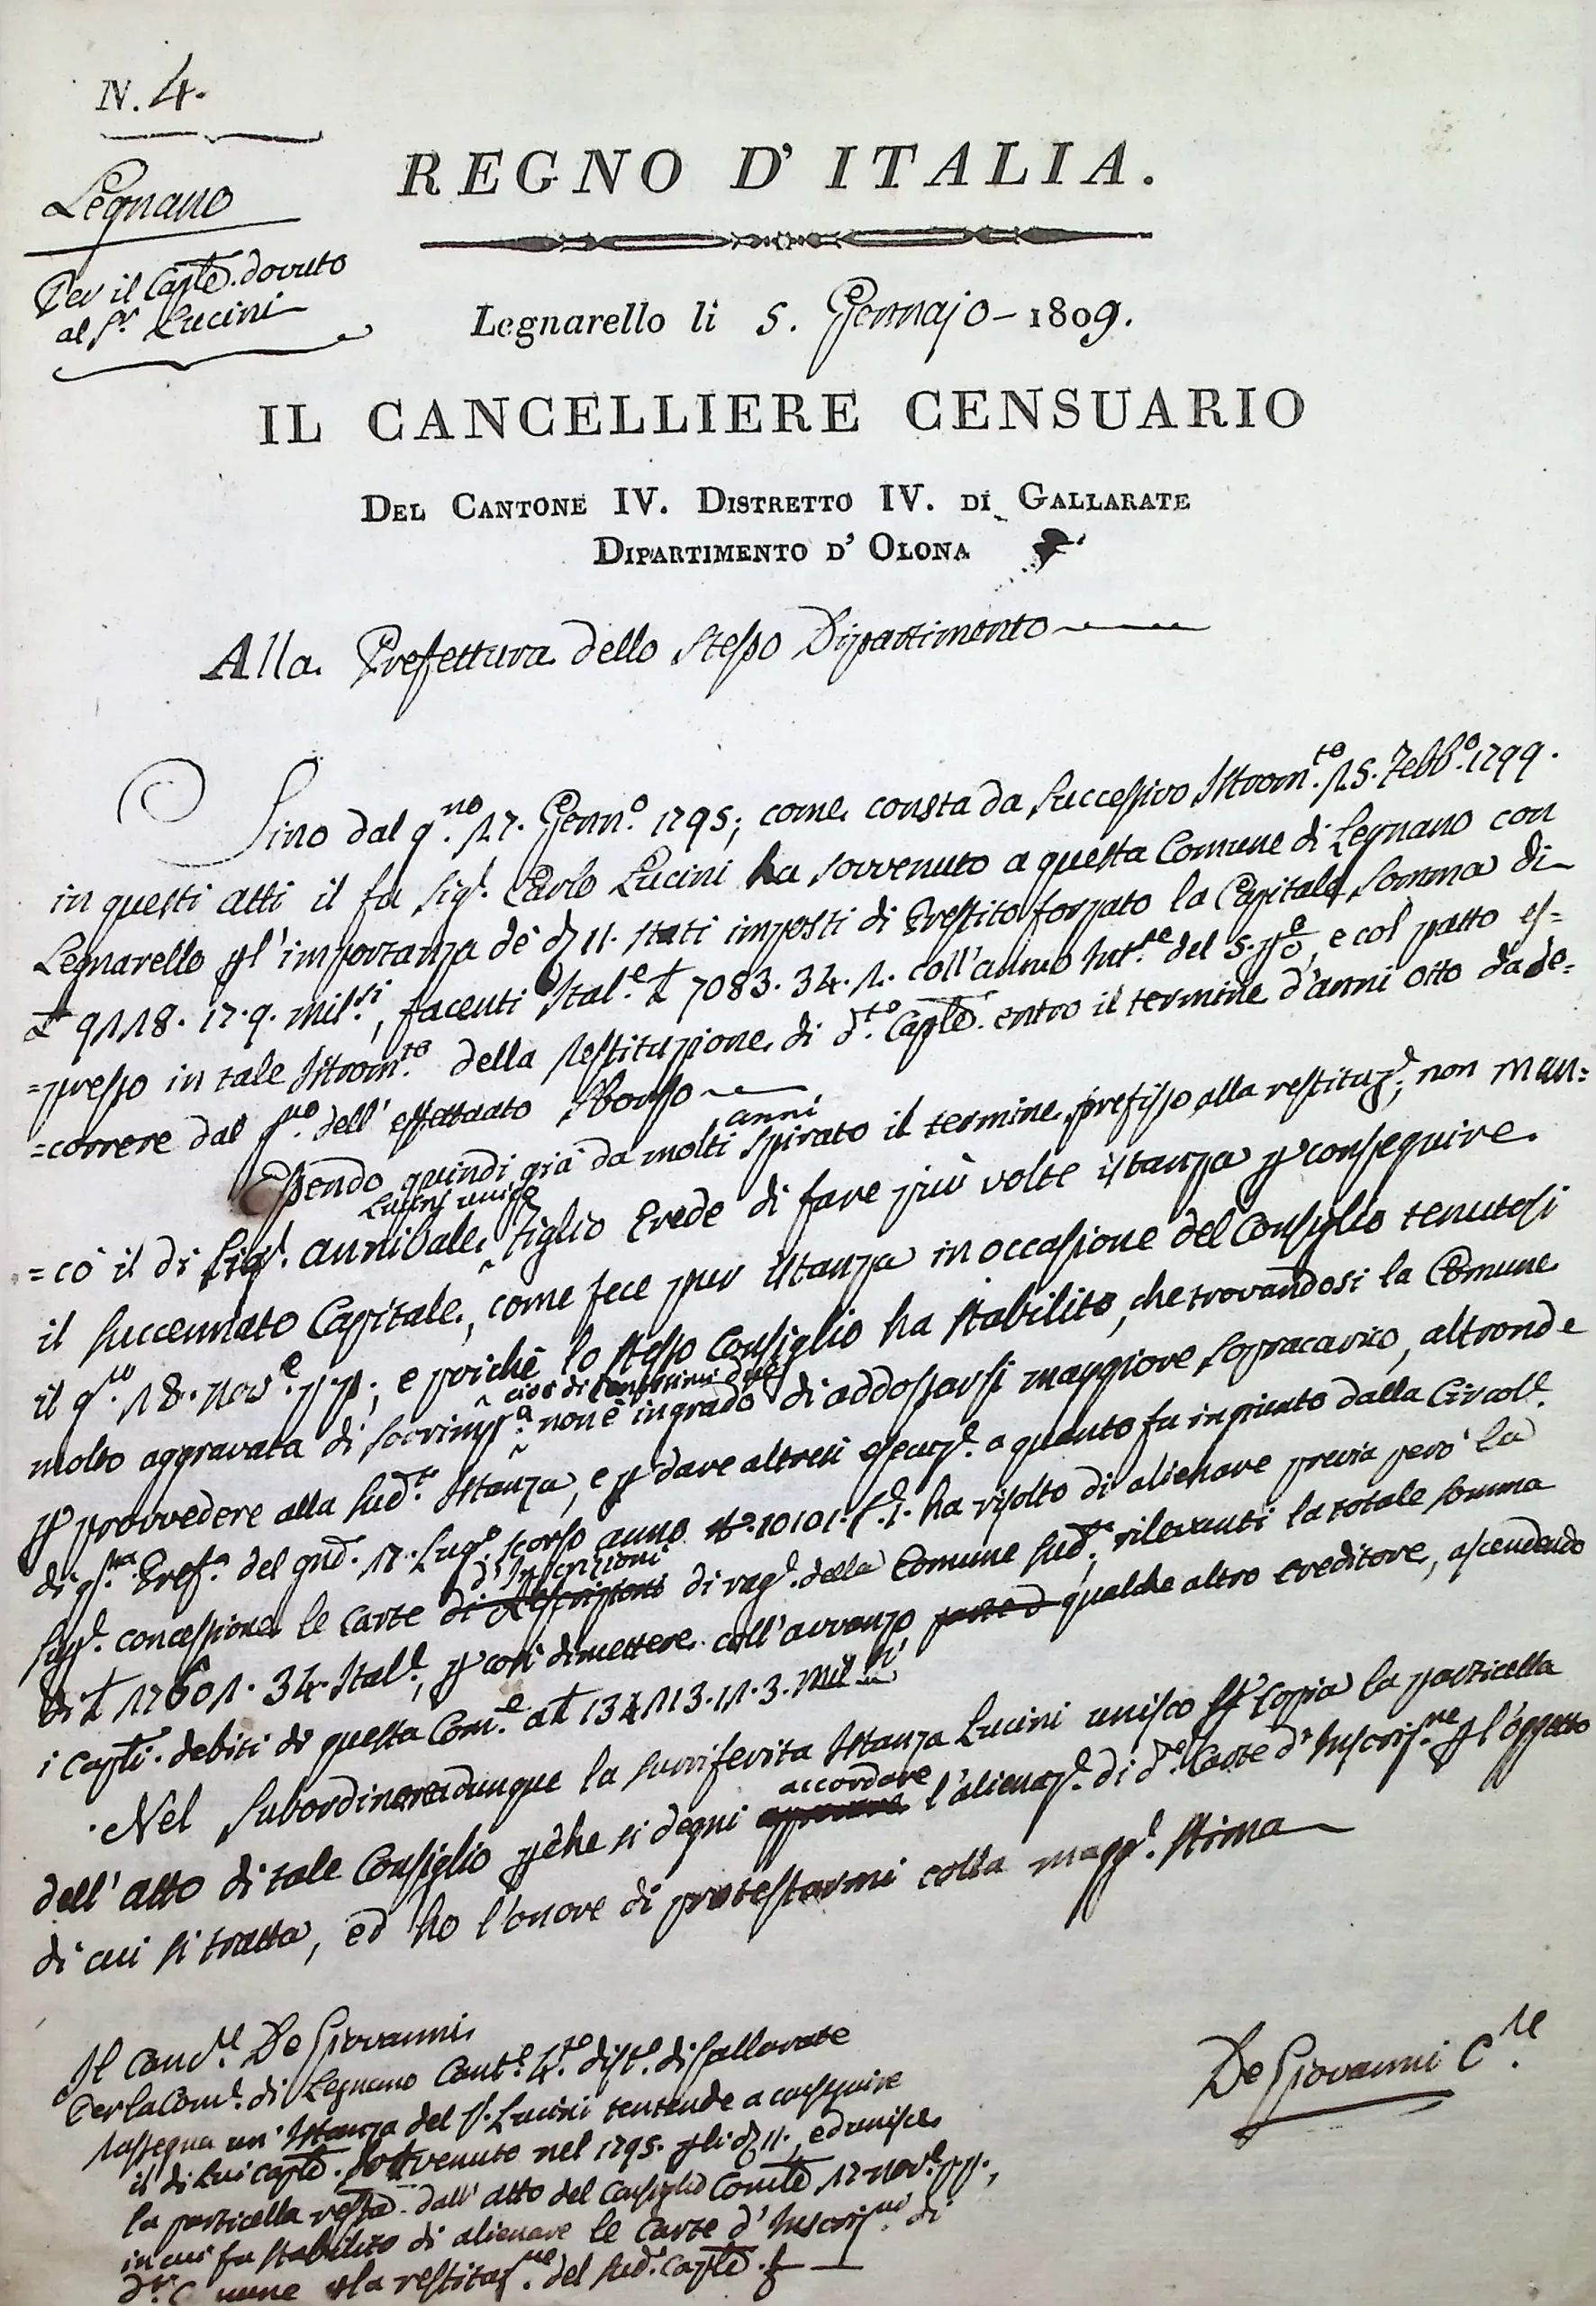 N. 4.
Legnano
Per il Caple. dovuto
al Sr. Lucini
REGNO D' ITALIA.
Legnarello li 5. Gennajo - 1809.
IL CANCELLIERE CENSUARIO
DEL CANTONE IV. DISTRETTO IV. DI GALLARATE
DIPARTIMENTO D' OLONA
Alla Prefettura dello stesso Dipartimento
Sino dal g.no 17. Genn.o 1795; come consta da successivo Istrom.to 15. Febb.o 1799.
in questi atti il fu Sig.r Carlo Lucini ha sovvenuto a questa Comune di Legnano con
Legnarello pl'importanza de' stati imposti di Prestito forzato la Capitale somma di
£ 9118. 17. 9. mil.si, facenti Ital.e £ 7083. 34. 1. coll'annuo Int.se del 5. p%, e col patto es=
=presso in tale Istrom.to della restituzione di d.to Caple. entro il termine d'anni otto da de=
=correre dal g.no dell' effettuato sborso
Essendo quindi già da molti anni spirato il termine prefisso alla restituz.e, non man=
=cò il di Sig.r Annibale Lucini unico figlio Erede di fare più volte istanza p conseguire
il succennato Capitale, come fece pur istanza in occasione del Consiglio tenutosi
il g.no 18. nov.e pp., e poichè lo stesso Consiglio ha stabilito, che trovandosi la Comune
molto aggravata di sovrimp.a cioè di centesimi non è in grado di addossarsi maggiore sopracarico, altronde
p provvedere alla sud.a Istanza, e p dare altresì esecuz.e a quanto fu ingiunto dalla Circol.e
di q.sta Pref.a del 17. Lug.o scorso anno N.o 10101. ha risolto di alienare previa però la
Sup.e concessione le Carte di Rescrizioni d'Inscrizioni di rag.e della Comune sud.a, rilevanti la totale somma
di £ 17601. 34. Ital.e, p così dimettere coll'avvanzo qualche altro creditore, ascendendo
i Capli. debiti di questa Com.e a £ 134113. 11. 3. Mil.si
Nel subordinare adunque la surriferita Istanza Lucini unisco p Copia la particella
dell' atto di tale Consiglio pchè si degni accordare l'alienaz.e di d.e Carte d'Inscriz.ne p l'oggetto
di cui si tratta, ed ho l'onore di protestarmi colla magg.e stima
De Giovanni C.re
Il Canc.e De Giovanni
Per la Com.e di Legnano Cant.e 4.to dist.o di Gallarate
rassegna un' Istanza del S. Lucini tendente a conseguire
il di lui Caple. sovvenuto nel 1795. ed unisce
la particella dall' atto del Consiglio Comle. 17 nov.e pp.,
in cui fu stabilito di alienare le Carte d' Inscriz.ni di
d.a Comune p la restituz.ne del sud.o Caple.